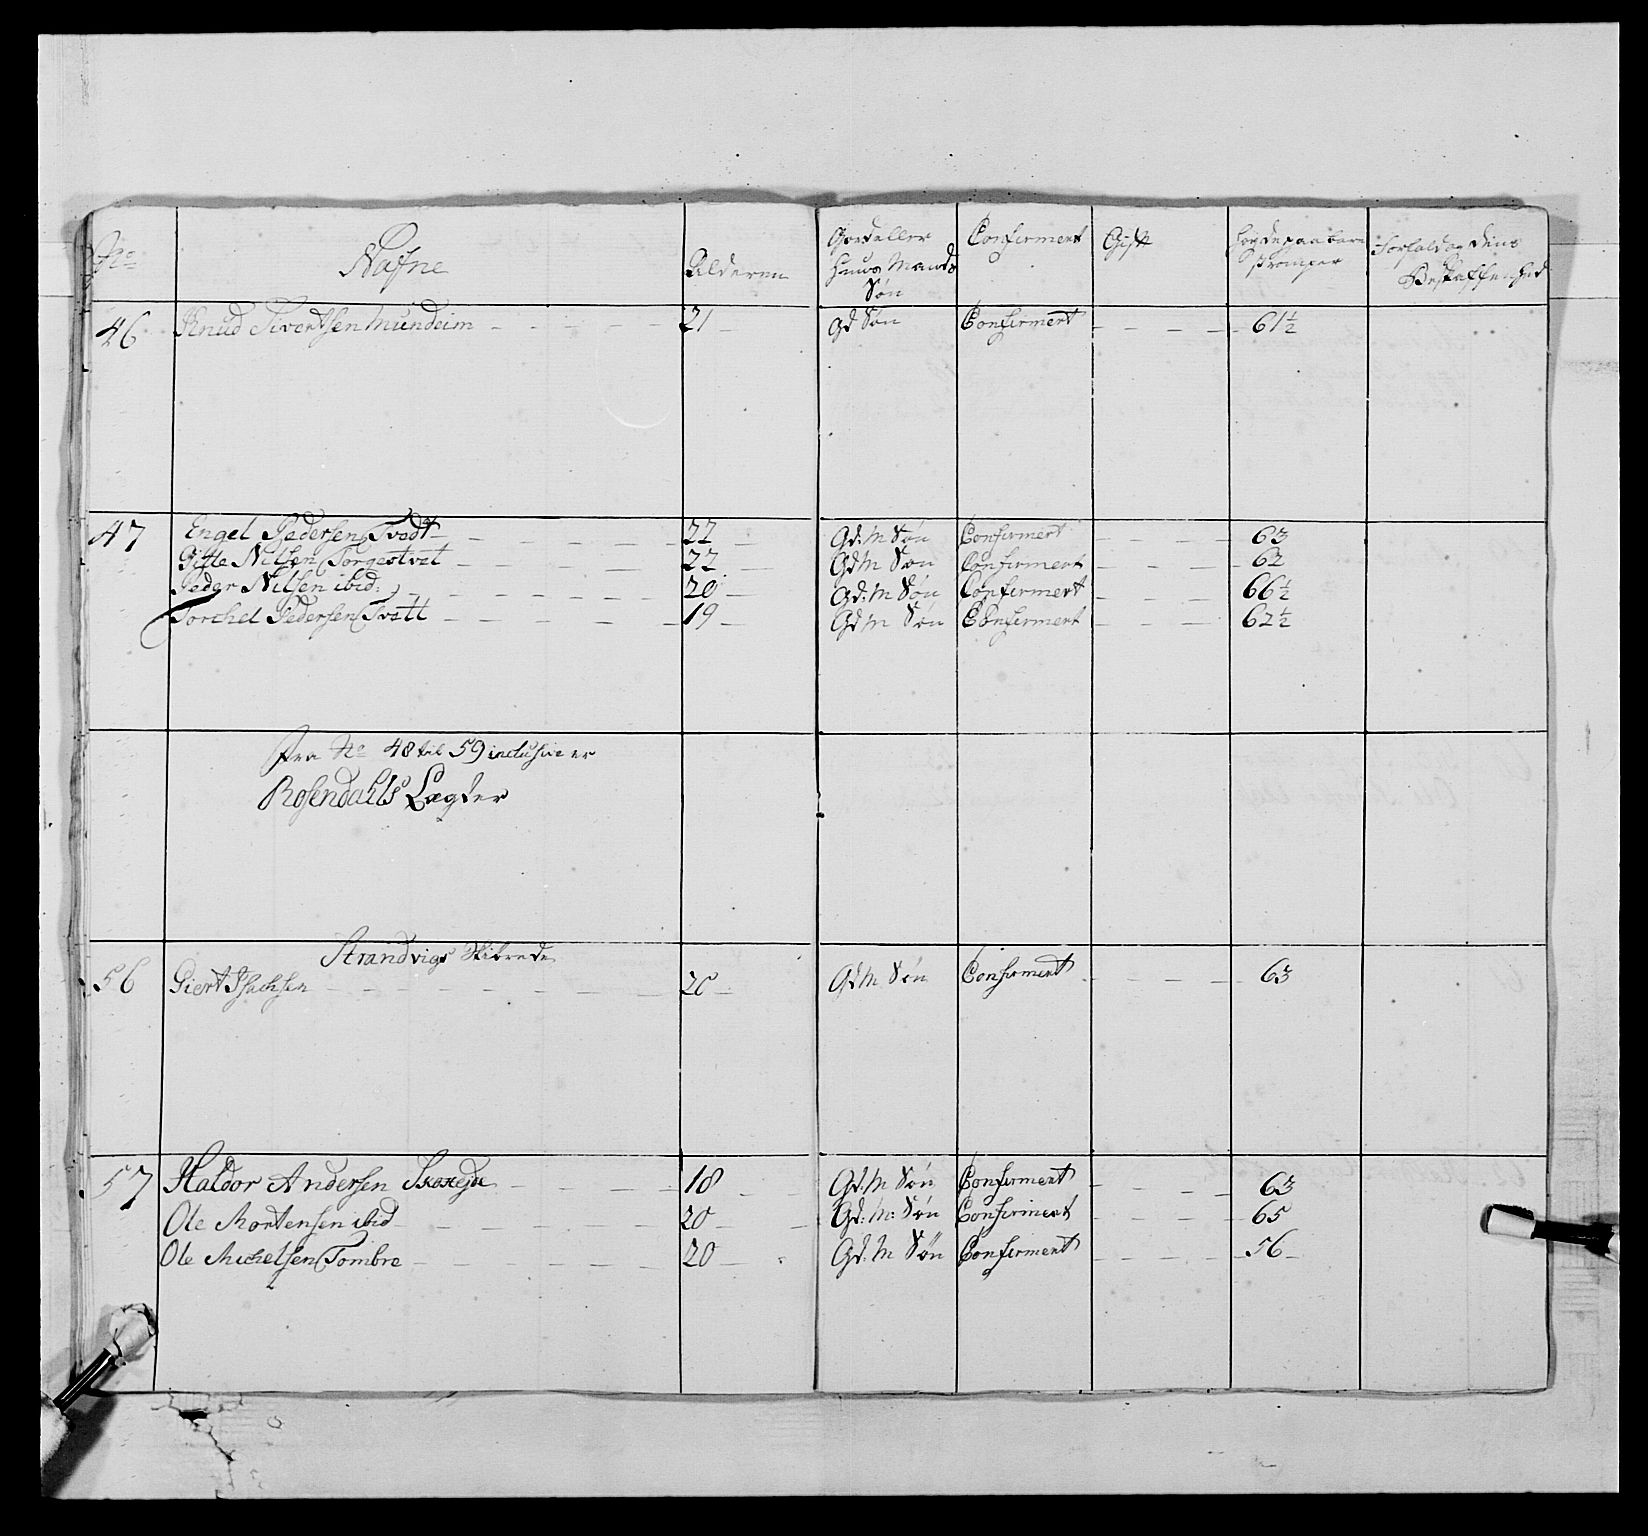 No Nafne Alderen Gord eller Huus Mands Søn Confirmert Gift Høyde paa bare Strømper Forhold og dens Beskaffenhed
46 Knud Sivertsen Mundeim 21 Gd Søn Confirmert 61½
47 Engel Pedersen Tvedt 22 Gd: M Søn Confirmert 63
Gitle Nilsen Torgestvet 22 Gd M Søn Confirmert 62
Peder Nilsen ibid: 20 Gd: M Søn Confirmert 66½
Torchel Pedersen Tvett 19 Gd M Søn Confirmert 62½
Fra No 48 til 59 inclusive er
Rosendahls Lægder
Strandvigs Skibrede
56 Giert Isachsen 20 Gd M Søn Confirmert 63
57 Haldor Andersen 18 Gd: M Søn Confirmert 63
Ole Mortensen ibid 20 Gd: M: Søn Confirmert 65
Ole Michelsen Tombre 20 Gd: M Søn Confirmert 56